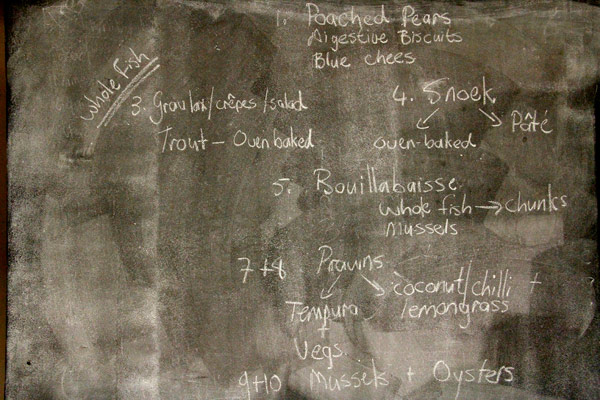 1. Poached Pears
Digestive Biscuits
Blue chees
Whole Fish
3. Gravlax/crêpes/salad
Trout - Oven baked
4. Snoek
Pâté
oven-baked
5. Bouillabaisse
whole fish → chunks
Mussels
7+8 Prawns
coconut/chilli +
lemongrass
Tempura
+
Vegs.
9+10 Mussels + Oysters